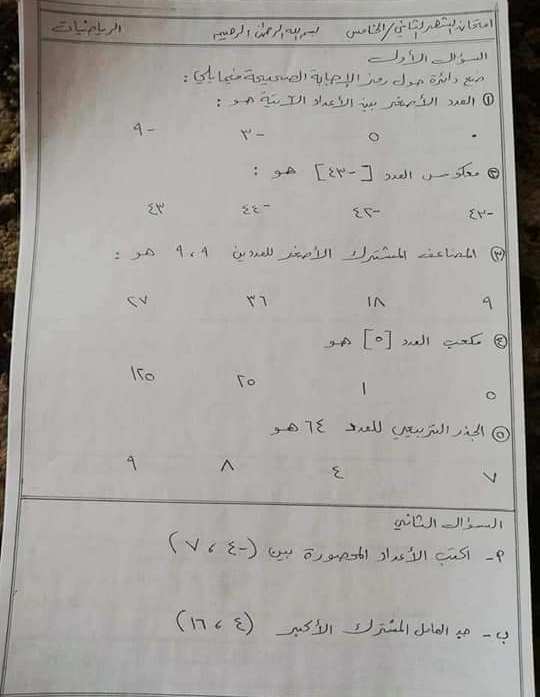 امتحان الشهر الثاني / الخامس بسم الله الرحمن الرحيم الرياضيات
السؤال الأول
ضع دائرة حول رمز الإجابة الصحيحة فيما يلي :
١ العدد الأصغر بين الأعداد الآتية هو :
٠ ٥ -٣ -٩
٢ معكوس العدد [-٤٣] هو :
-٤٣ -٤٢ -٤٤ ٤٣
٣ المضاعف المشترك الأصغر للعددين ٩ ، ٩ هو :
٩ ١٨ ٣٦ ٢٧
٤ مكعب العدد [٥] هو
٥ ١ ٢٥ ١٢٥
٥ الجذر التربيعي للعدد ٦٤ هو
٧ ٤ ٨ ٩
السؤال الثاني
٩- اكتب الأعداد المحصورة بين (-٤ ، ٧)
ب- جد العامل المشترك الأكبر (٤ ، ١٦)